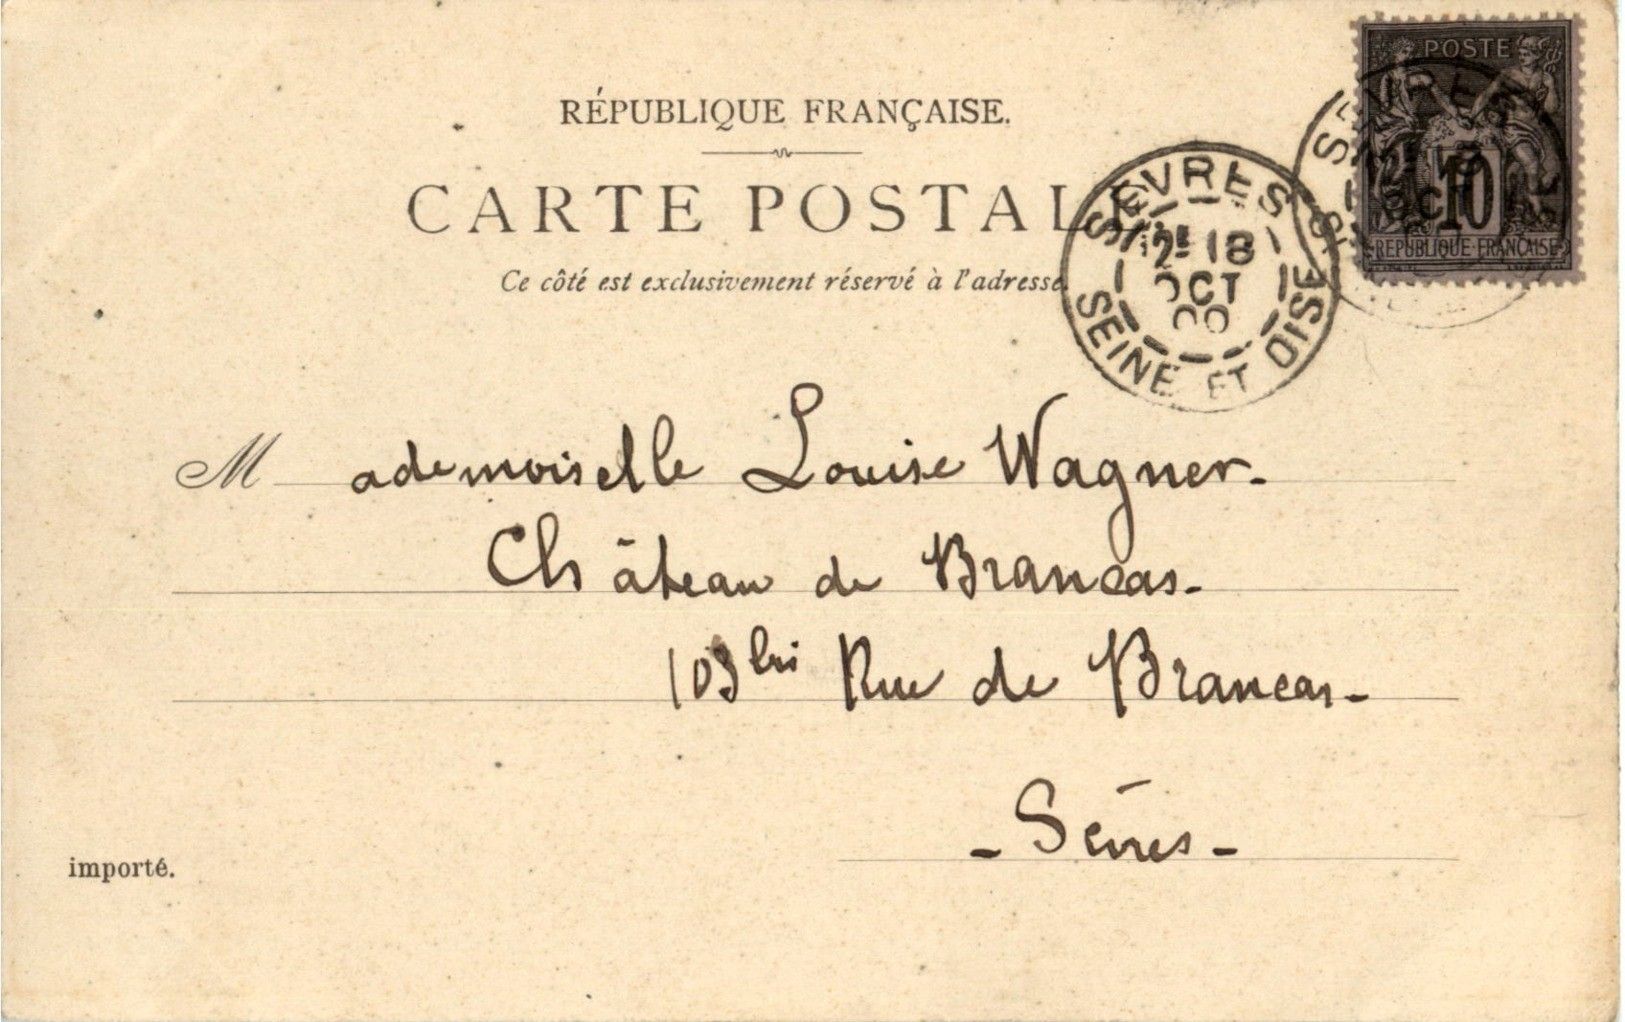 RÉPUBLIQUE FRANÇAISE.
CARTE POSTALE
Ce côté est exclusivement réservé à l'adresse.
POSTE
10
REPUBLIQUE FRANÇAISE
SEVRES
2E 18
OCT
00
SEINE ET OISE
Mademoiselle Louise Wagner.
Château de Brancas.
103 bis Rue de Brancas.
- Sèvres -
importé.